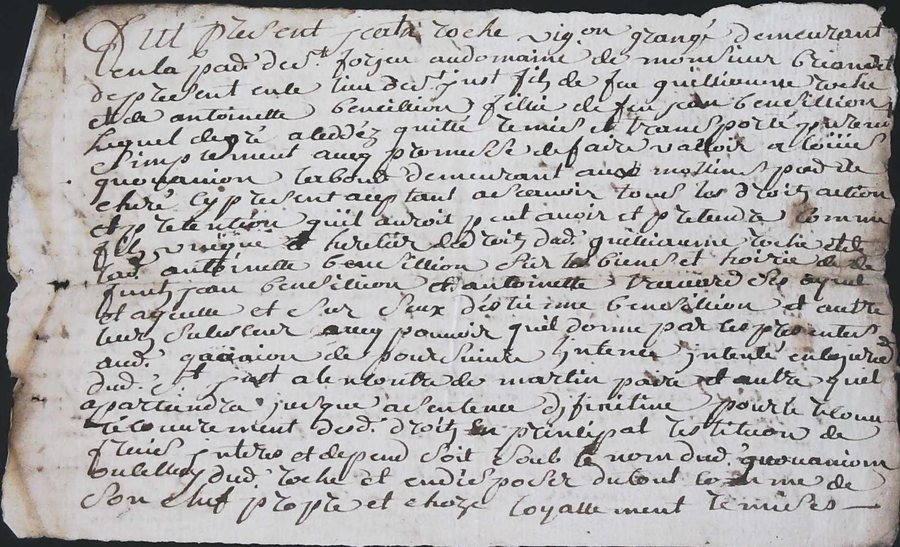 Fut present Jean roche vigon grangé demeurant
en la pad. de st forjeu au domaine de monsieur
de present en ce lieu de st just filz de fue guillieaume roche
et de antoinette bensillion fillie de feu jean bensillion
lequel de gré a ceddéz quitté remis et transporté purem
simplement aveq promesse de faire valloir a
labord demeurant aux mollins pad. de
chiré cy present aceptant ascavoir tous les droitz action
et pretention quil auroit peut avoir et pretendre comme
filz unique et heretier de droitz dud. guillieaume roche et de
lad. antoinette bensillion sur les biens et hoirie de
funt jean bensillion et antoinette ses ayeul
et ayeulle et sur seux destienne bensillion et autre
leur sulesseur aveq pouvoir quil donne par les presentes
aud. de poursuivre intenté
dud. st just a lencontre de martin paire et autre quil
apartiendra jusque a sentence difinitive pour le
recouvrement desd. droitz en principal restitution de
fruis interes et depend soit soub le nom dud. gouvanion
ou celluy dud. roche et en disposer du tout comme de
son chef propre et choze loyallement remises